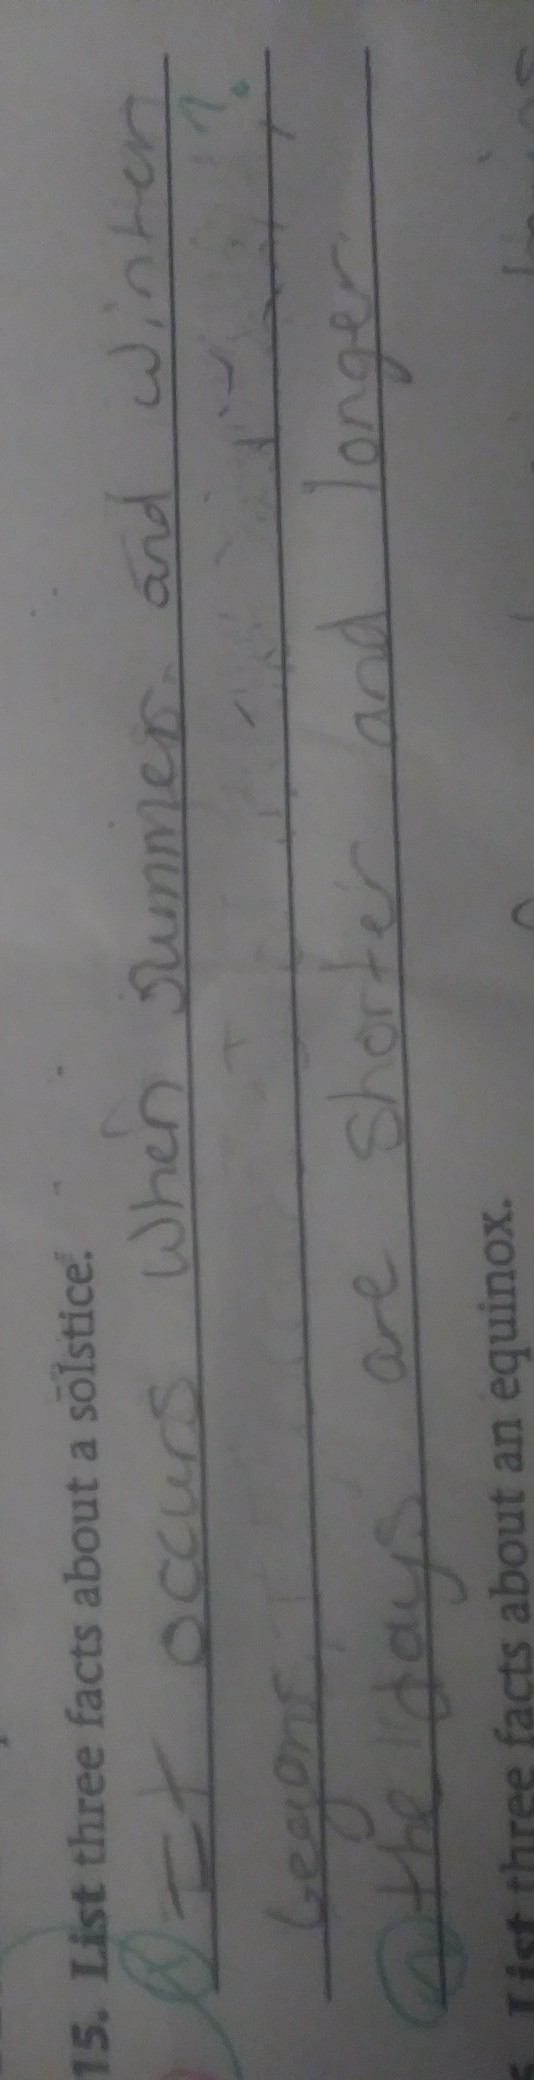 15. List three facts about a solstice.
It occurs when summer and winter
?
the days are shorter and longer
List three facts about an equinox.